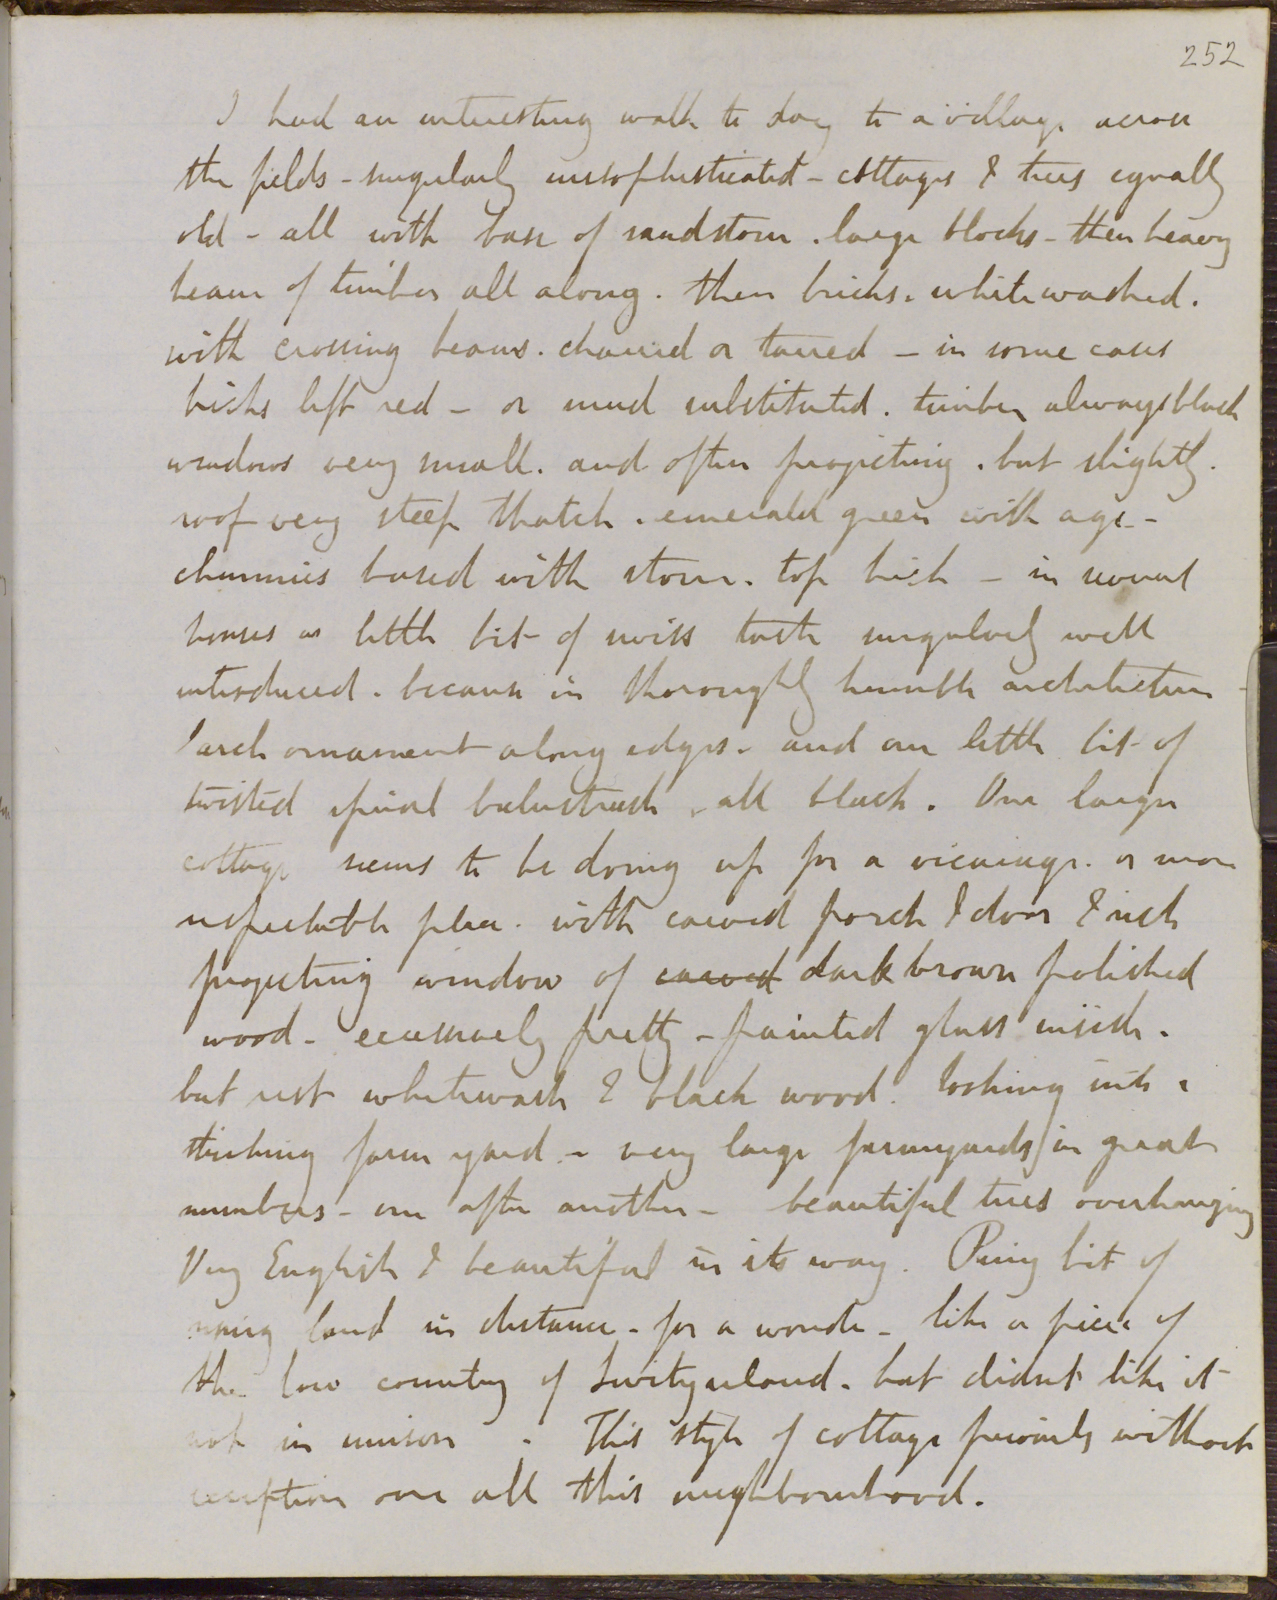 252
I had an interesting walk to day to a village across
the fields - singularly unsophisticated - cottages & trees equally
old - all with base of sandstone . large blocks - then heavy
beam of timber all along . then bricks . whitewashed .
with crossing beams . charred or tarred - in some cases
bricks left red - or mud substituted . timber always black
windows very small . and often projecting . but slightly .
roof very steep thatch . emerald green with age -
chimnies based with stone . top brick - in several
houses a little bit of swiss taste singularly well
introduced . because in thoroughly humble architecture -
arch ornament along edges . and one little bit of
twisted spiral balustrade . all black . One larger
cottage seems to be doing up for a vicarage . or more
respectable place . with carved porch & door & rich
projecting window of carved dark brown polished
wood - excessively pretty - painted glass inside .
but rest whitewash & black wood . looking into a
stinking farm yard - very large farmyards in great
numbers - one after another - beautiful trees overhanging
Very English & beautiful in its way . bit of
rising land in distance - for a wonder - like a piece of
the low country of Switzerland . but didnt like it
not in unison . This style of cottage without
exception over all this neighbourhood .